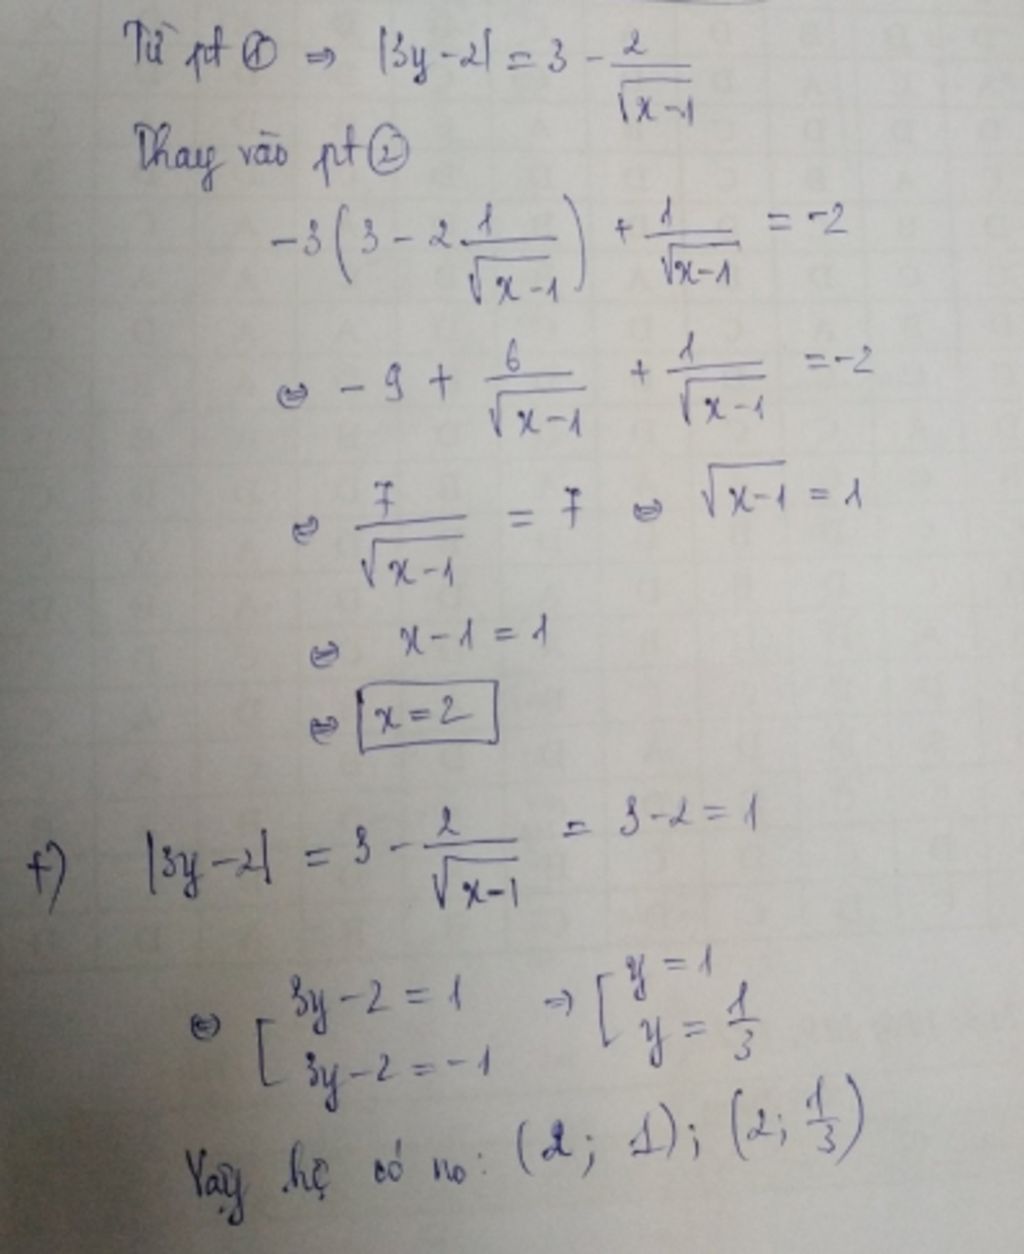 Từ pt ① ⇒ |3y-2| = 3 - 2/√(x-1)
Thay vào pt ②
-3(3 - 2 1/√(x-1)) + 1/√(x-1) = -2
⇔ -9 + 6/√(x-1) + 1/√(x-1) = -2
⇔ 7/√(x-1) = 7 ⇔ √(x-1) = 1
⇔ x-1 = 1
⇔ x = 2
+) |3y-2| = 3 - 2/√(x-1) = 3-2 = 1
⇔ [ 3y-2 = 1 ⇒ [ y = 1
3y-2 = -1 y = 1/3
Vậy hệ có no: (2; 1); (2; 1/3)